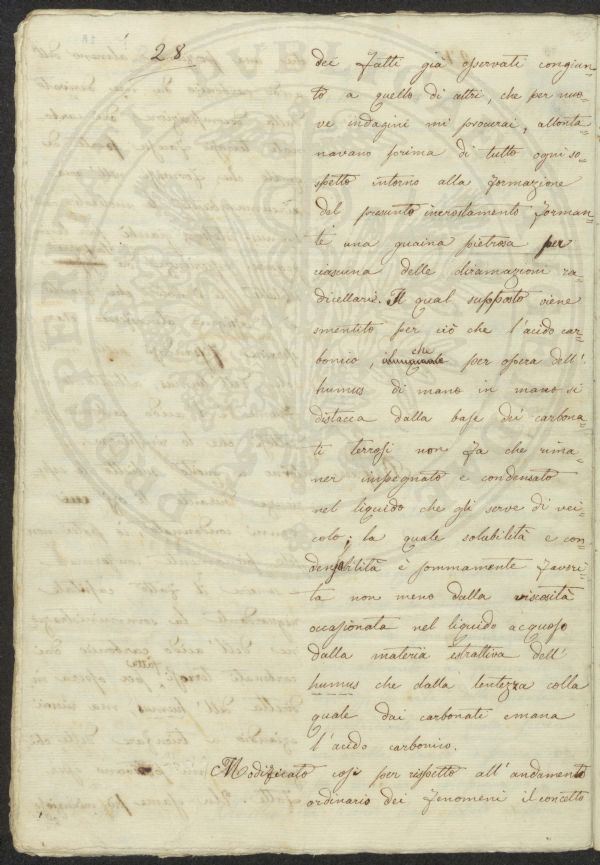 28
dei fatti già osservati congiun-
to a quello di altri, che per nuo-
ve indagini mi procurai, allonta-
navano prima di tutto ogni so-
spetto intorno alla formazione
del presunto incrostamento forman-
te una guaina pietrosa per
ciascuna delle diramazioni ra-
dicellari. Il qual supposto viene
smentito per ciò che l'acido car-
bonico, che per opera dell'
humus di mano in mano si
distacca dalla base dei carbona-
ti terrosi non fa che rima-
ner impegnato e condensato
nel liquido che gli serve di vei-
colo; la quale solubilità e con-
densibilità è sommamente favori-
ta non meno dalla viscosità
occasionata nel liquido acquoso
dalla materia estrattiva dell'
humus che dalla lentezza colla
quale dai carbonati emana
l'acido carbonico.
Modificato così per rispetto all'andamento
ordinario dei fenomeni il concetto